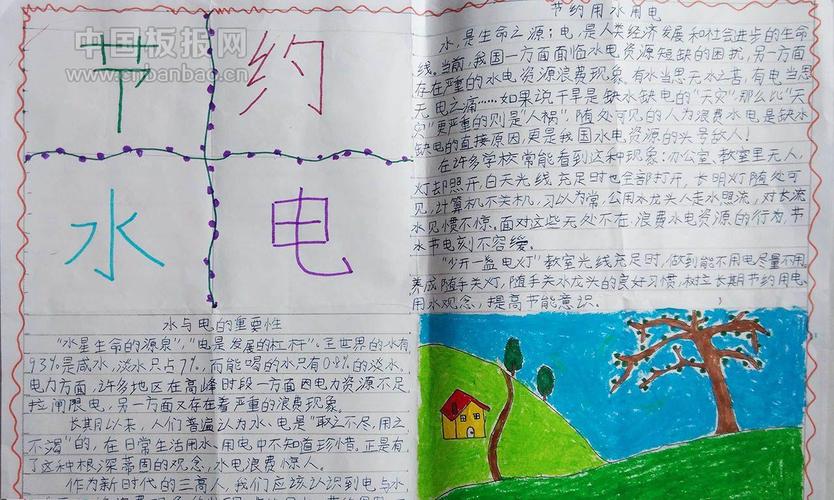 中国板报网
www.cnbanbao.cn
节约
水电
水与电的重要性
"水星生命的源泉","电是发展的杠杆".全世界的水有
93%是咸水,淡水只占7%,而能喝的水只有0.8%的淡水.
电力方面,许多地区在高峰时段一方面因电力资源不足
拉闸限电,另一方面又存在着严重的浪费现象。
长期以来,人们普遍认为水、电是"取之不尽,用之
不渴"的,在日常生活用水、用电中不知道珍惜.正是有
了这种根深蒂固的观念,水电浪费惊人。
作为新时代的三高人,我们应该认识到电与水
节约用水用电
水,是生命之源;电,是人类经济发展和社会进步的生命
线。当前,我国一方面面临水电资源短缺的困扰,另一方面
存在严重的水电资源浪费现象。有水当思无水之苦,有电当思
无电之痛……如果说干旱是缺水缺电的"天灾",那么比"天
灾"更严重的则是"人祸",随处可见的人为浪费水电是缺水
缺电的直接原因,更是我国水电资源的头号敌人!
在许多学校常能看到这种现象:办公室、教室里无人,
灯却照开,白天光线充足时也全部打开,长明灯随处可
见,计算机不关机,习以为常,公用水龙头人走水照流,对长流
水见惯不惊。面对这些无处不在,浪费水电资源的行为,节
水节电刻不容缓。
"少开一盏电灯"教室光线充足时,做到能不用电尽量不用,
养成随手关灯,随手关水龙头的良好习惯,树立长期节约用电
用水观念,提高节能意识.